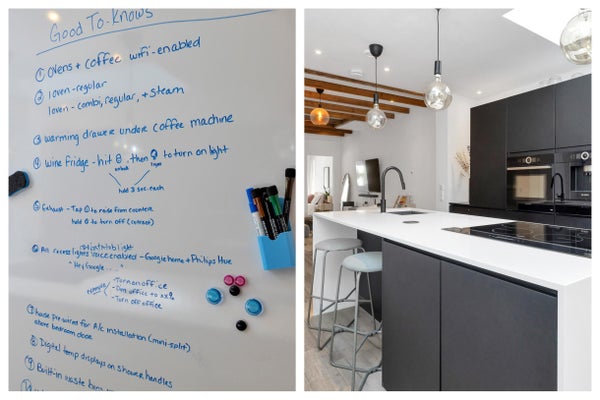 Good To-Knows
① ovens + coffee wifi-enabled
② 1oven-regular
1oven-combi, regular, + steam
③ warming drawer under coffee machine
④ wine fridge - hit, then to turn on light
hold 3 sec. each
⑤ Exhaust - Tap to raise from counter
hold to turn off (retract)
⑥ All recess lights voice enabled - Google home + Philips Hue
"Hey Google ....."
- Turn on office
- Dim office to xx%
- Turn off office
⑦ house pre wired for A/c installation (mini-split)
above bedroom door
⑧ Digital temp displays on shower handles
⑨ Built-in waste